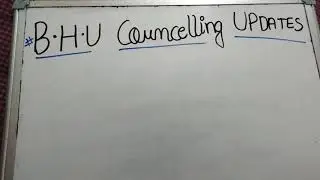 * B.H.U Councelling UPDATES